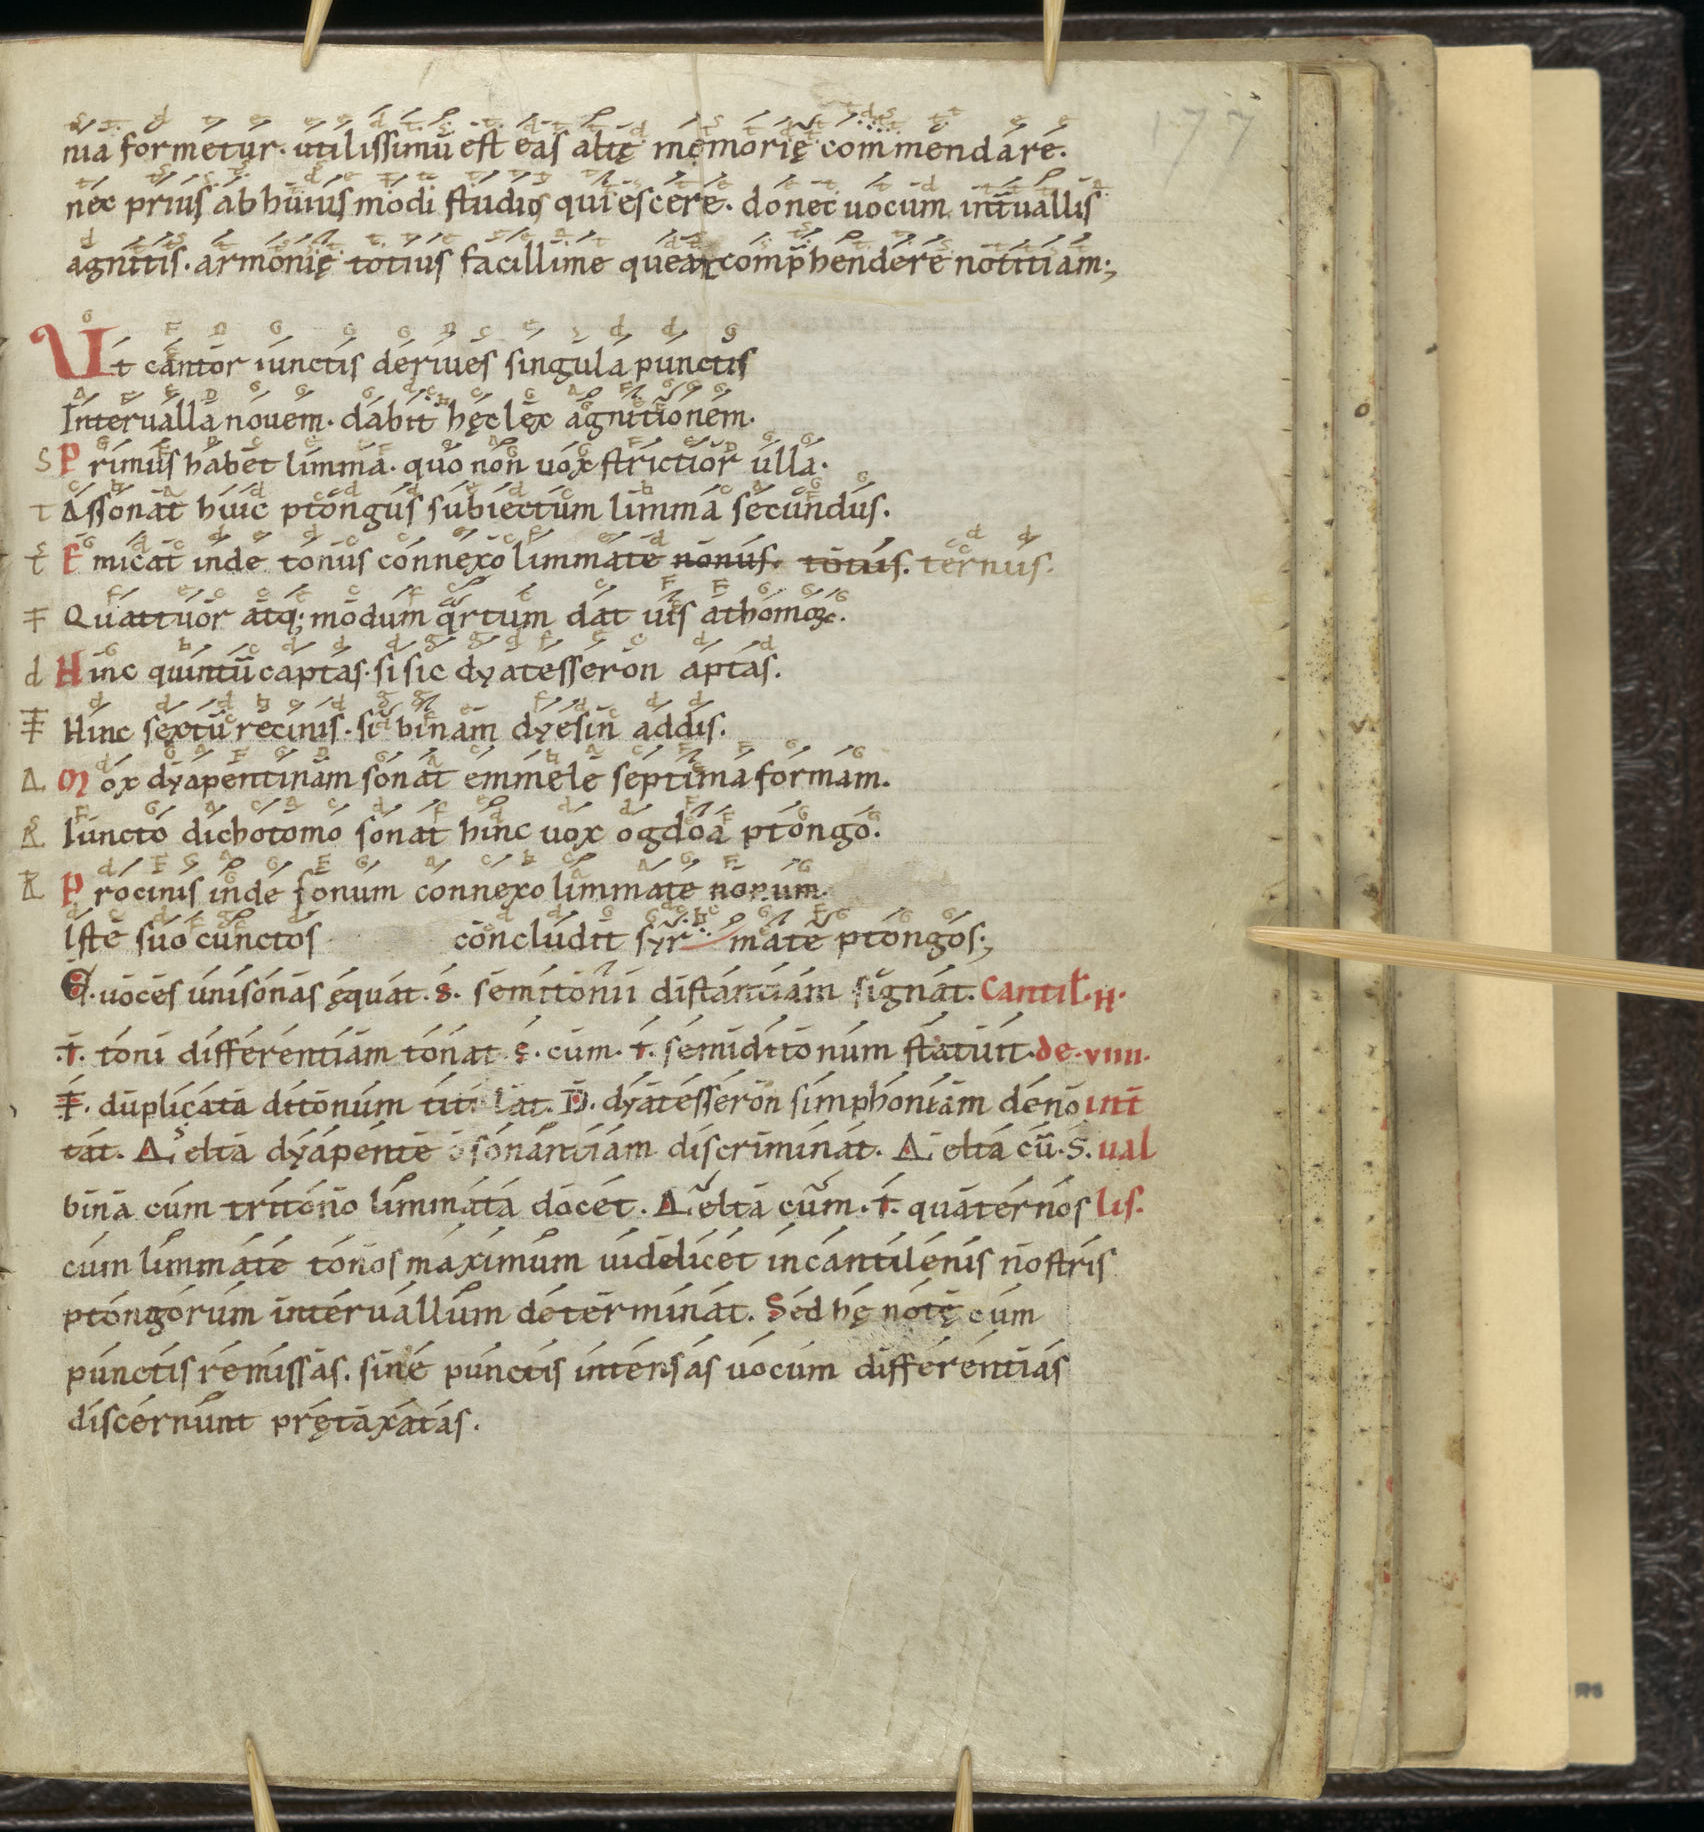 177
nia formetur. utilissimū est eas altę memorię commendare.
nec prius ab huius modi studiis quiescere. donec uocum int̄uallis
agnitis. armonię totius facillime queat comp̄hendere notitiam;
Ut cantor iunctis deriues singula punctis
Interualla nouem. dabit hęc lex agnitionem.
S Primus habet limma. quo non uox strictior ulla.
T Assonat huic ptongus subiectum limma secundus.
Emicat inde tonus connexo limmate nonus. totus. ternus.
Quattuor atq; modum qͣrtum dat uis athomoꝝ.
d Hinc quintū captas. si sic dyatesseron aptas.
Hinc sextū recinis. si binam dyesin addis.
Δ Mox dyapentinam sonat emmele septima formam.
Iuncto dichotomo sonat hinc uox ogdoa ptongo.
Procinis inde sonum connexo limmate nonum.
Iste suo cunctos concludit syrmate ptongos;
E. uoces unisonas ęquat. S. semitonii distantiam signat. Cantil. H.
.T. toni differentiam tonat. S. cum. T. semiditonum statuit. de. VIIII.
T. duplicata ditonum titulat. D. dyatesseron simphoniam deno int̄
tat. Δ elta dyapente sonantiam discriminat. Δ elta cū. S. ual
bina cum tritono limmata docet. Δ elta cum. T. quaternos lis.
cum limmate tonos maximum uidelicet in cantilenis nostris
ptongorum interuallum determinat. Sed hę notę cum
punctis remissas. sine punctis intensas uocum differentias
discernunt prętaxatas.